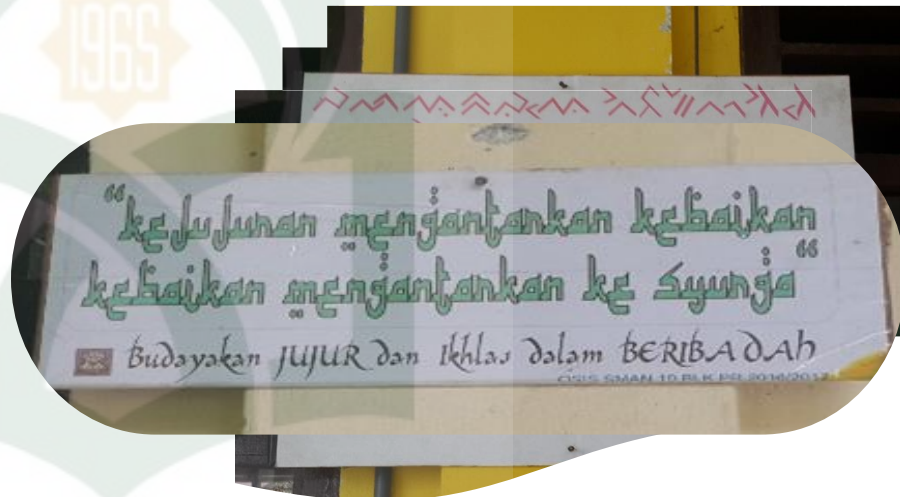 1965
“kejujuran mengantarkan kebaikan
kebaikan mengantarkan ke syurga“
Budayakan JUJUR dan Ikhlas dalam BERIBADAH
OSIS SMAN 10 2016/2017